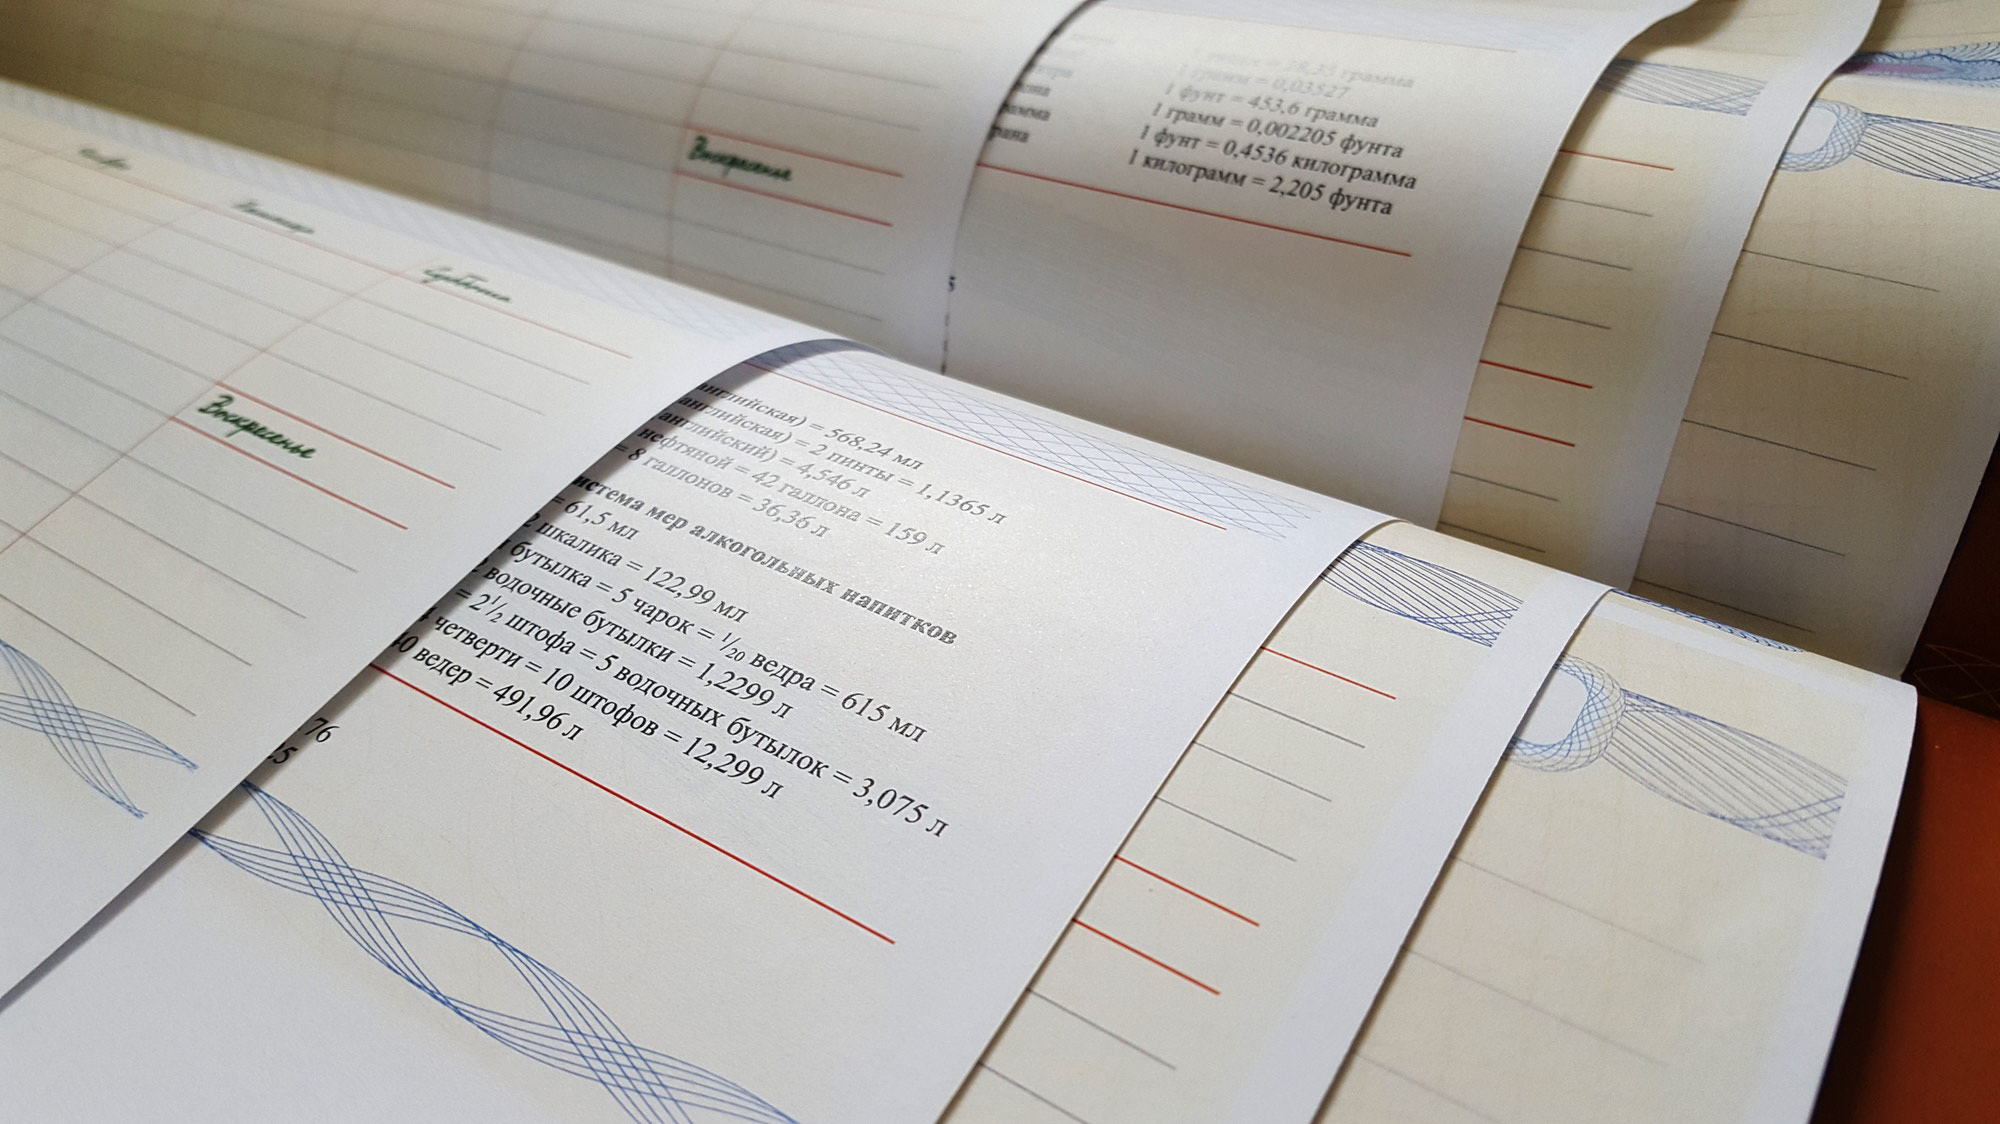 Суббота
Воскресенье
Воскресенье
28,35 грамма
1 грамм = 0,03527
1 фунт = 453,6 грамма
1 грамм = 0,002205 фунта
1 фунт = 0,4536 килограмма
1 килограмм = 2,205 фунта
5
английская) = 568,24 мл
английская) = 2 пинты = 1,1365 л
английский) = 4,546 л
нефтяной = 42 галлона = 159 л
= 8 галлонов = 36,36 л
истема мер алкогольных напитков
= 61,5 мл
2 шкалика = 122,99 мл
бутылка = 5 чарок = 1/20 ведра = 615 мл
2 водочные бутылки = 1,2299 л
= 2 1/2 штофа = 5 водочных бутылок = 3,075 л
4 четверти = 10 штофов = 12,299 л
40 ведер = 491,96 л
76